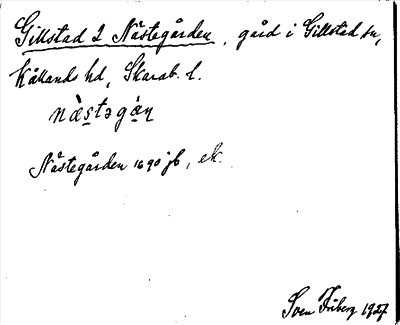 Gillstad 2 Nästegården, gård i Gillstad sn,
Kållands hd, Skarab. l.
næ̀s̠tǝgà̠ṇ
Nästegården 1690 jb, ek.
Sven Friberg 1927